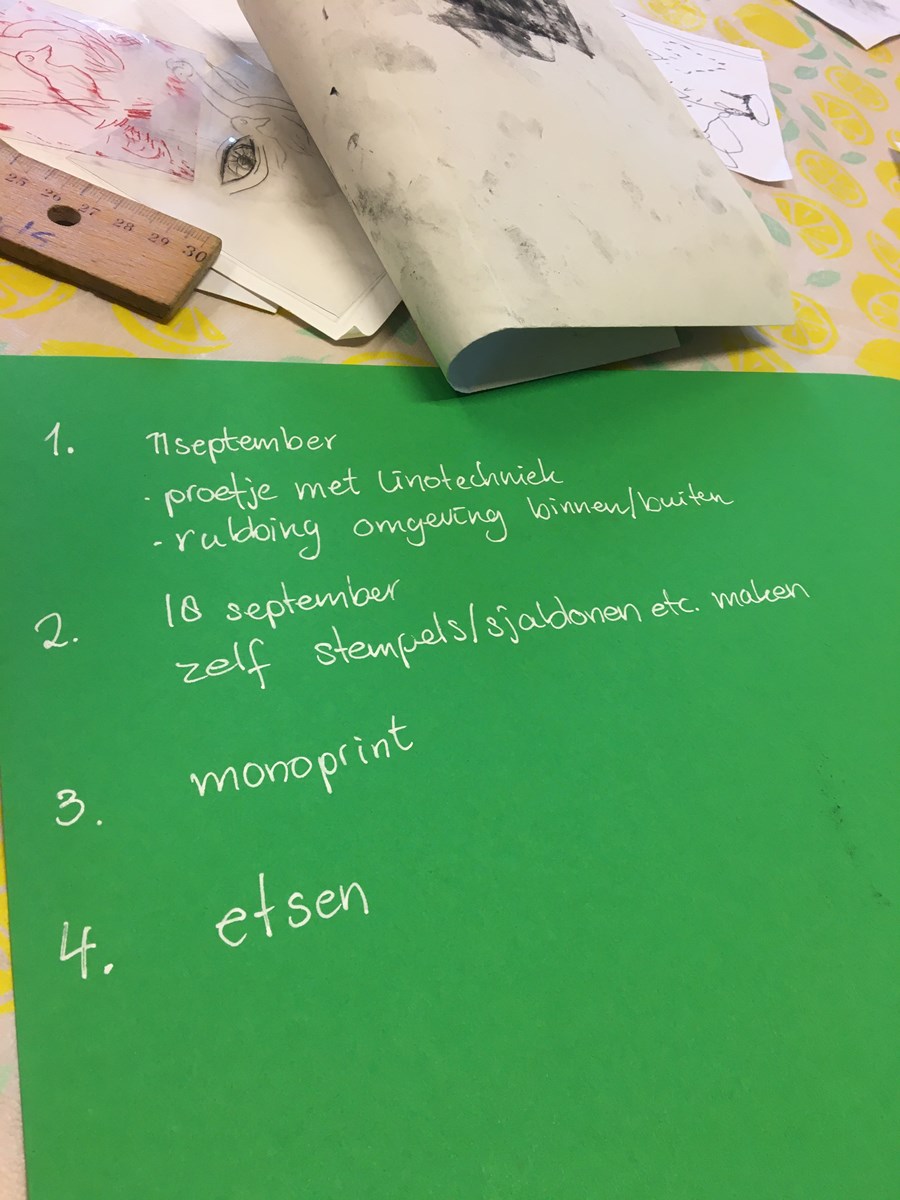 25 26 27 28 29 30
1. 11 september
· proefje met linotechniek
- rubbing omgeving binnen/buiten
2. 18 september
zelf stempels/sjablonen etc. maken
3. monoprint
4. etsen